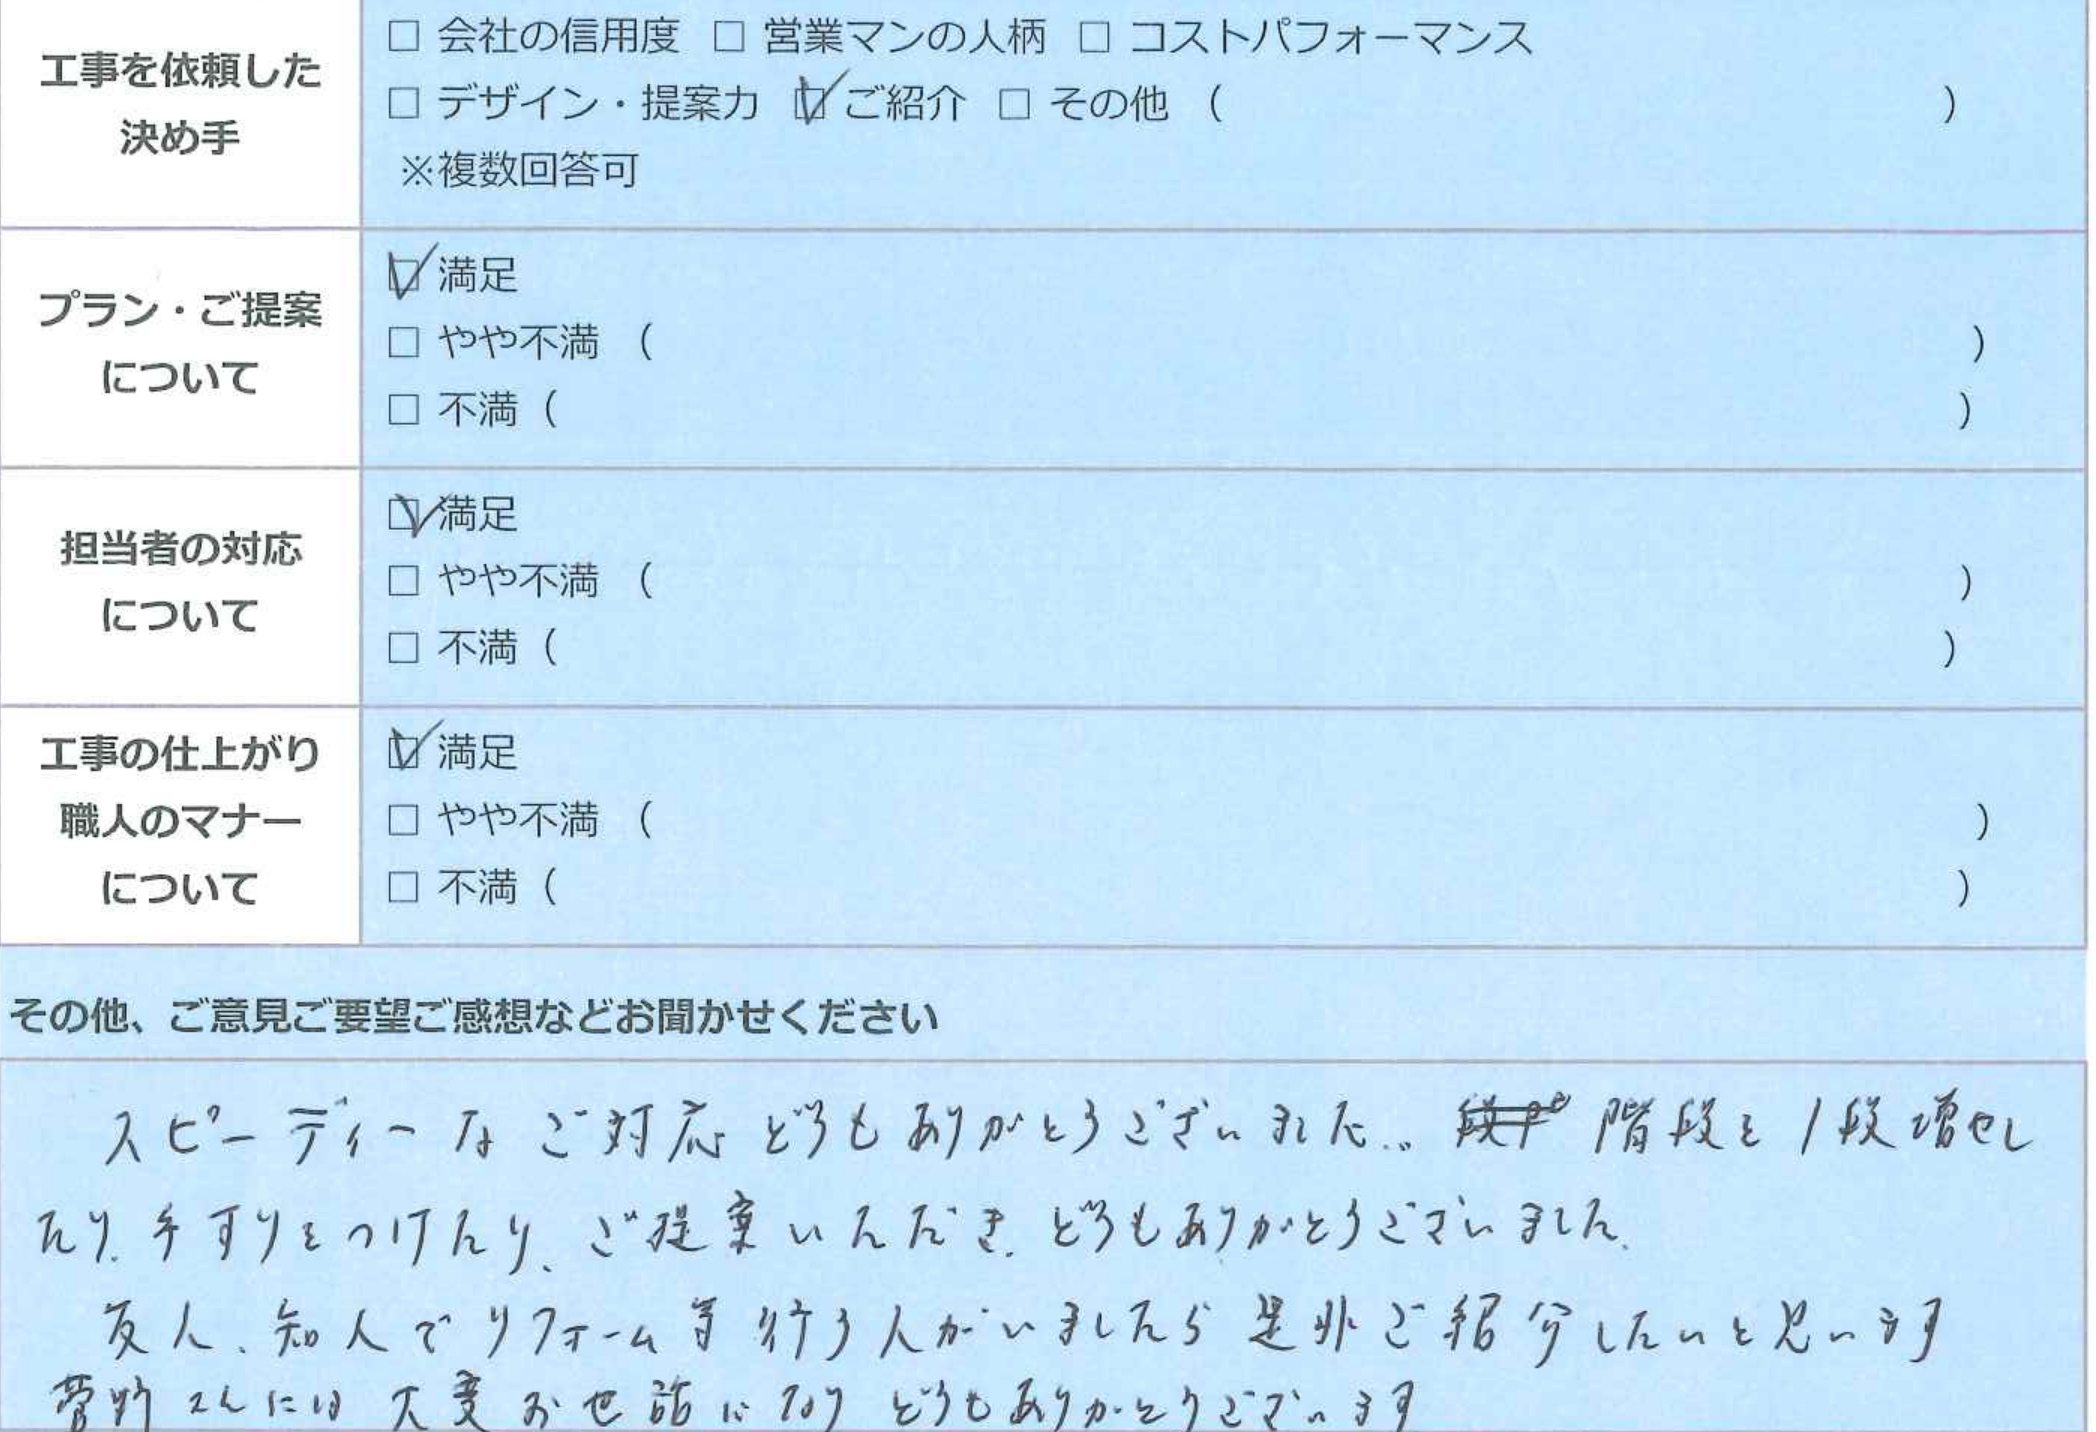 工事を依頼した
決め手
□ 会社の信用度 □ 営業マンの人柄 □ コストパフォーマンス
□ デザイン・提案力 ☑ ご紹介 □ その他 （ ）
※複数回答可
プラン・ご提案
について
☑ 満足
□ やや不満 （ ）
□ 不満（ ）
担当者の対応
について
☑ 満足
□ やや不満 （ ）
□ 不満（ ）
工事の仕上がり
職人のマナー
について
☑ 満足
□ やや不満 （ ）
□ 不満（ ）
その他、ご意見ご要望ご感想などお聞かせください
スピーディーなご対応どうもありがとうございました。 階段を1段増やし
たり、手すりをつけたり、ご提案いただき、どうもありがとうございました。
友人、知人でリフォーム等行う人がいましたら是非ご紹介したいと思います
菅野さんには大変お世話になりどうもありがとうございます